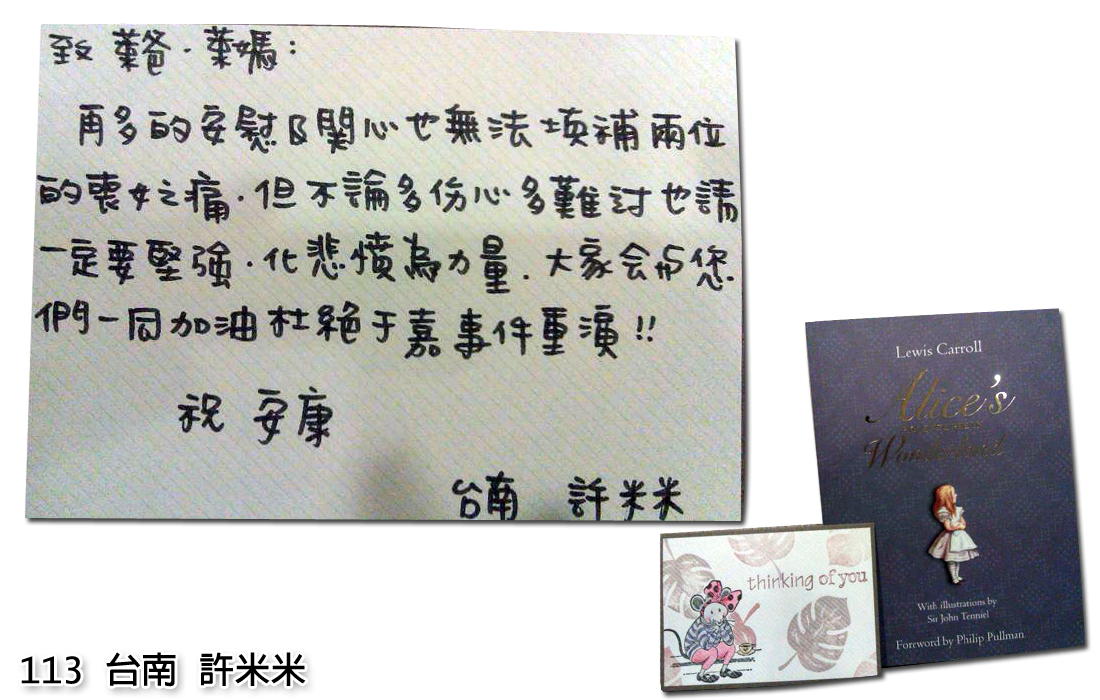 致 葉爸．葉媽：
再多的安慰&関心也無法填補兩位
的喪女之痛．但不論多伤心多難过也請
一定要堅強．化悲憤為力量．大家会与您
們一同加油杜絕于嘉事件重演!!
祝 安康
台南 許米米
Lewis Carroll
Alice's
Wonderland
With illustrations by
Sir John Tenniel
Foreword by Philip Pullman
thinking of you
113 台南 許米米